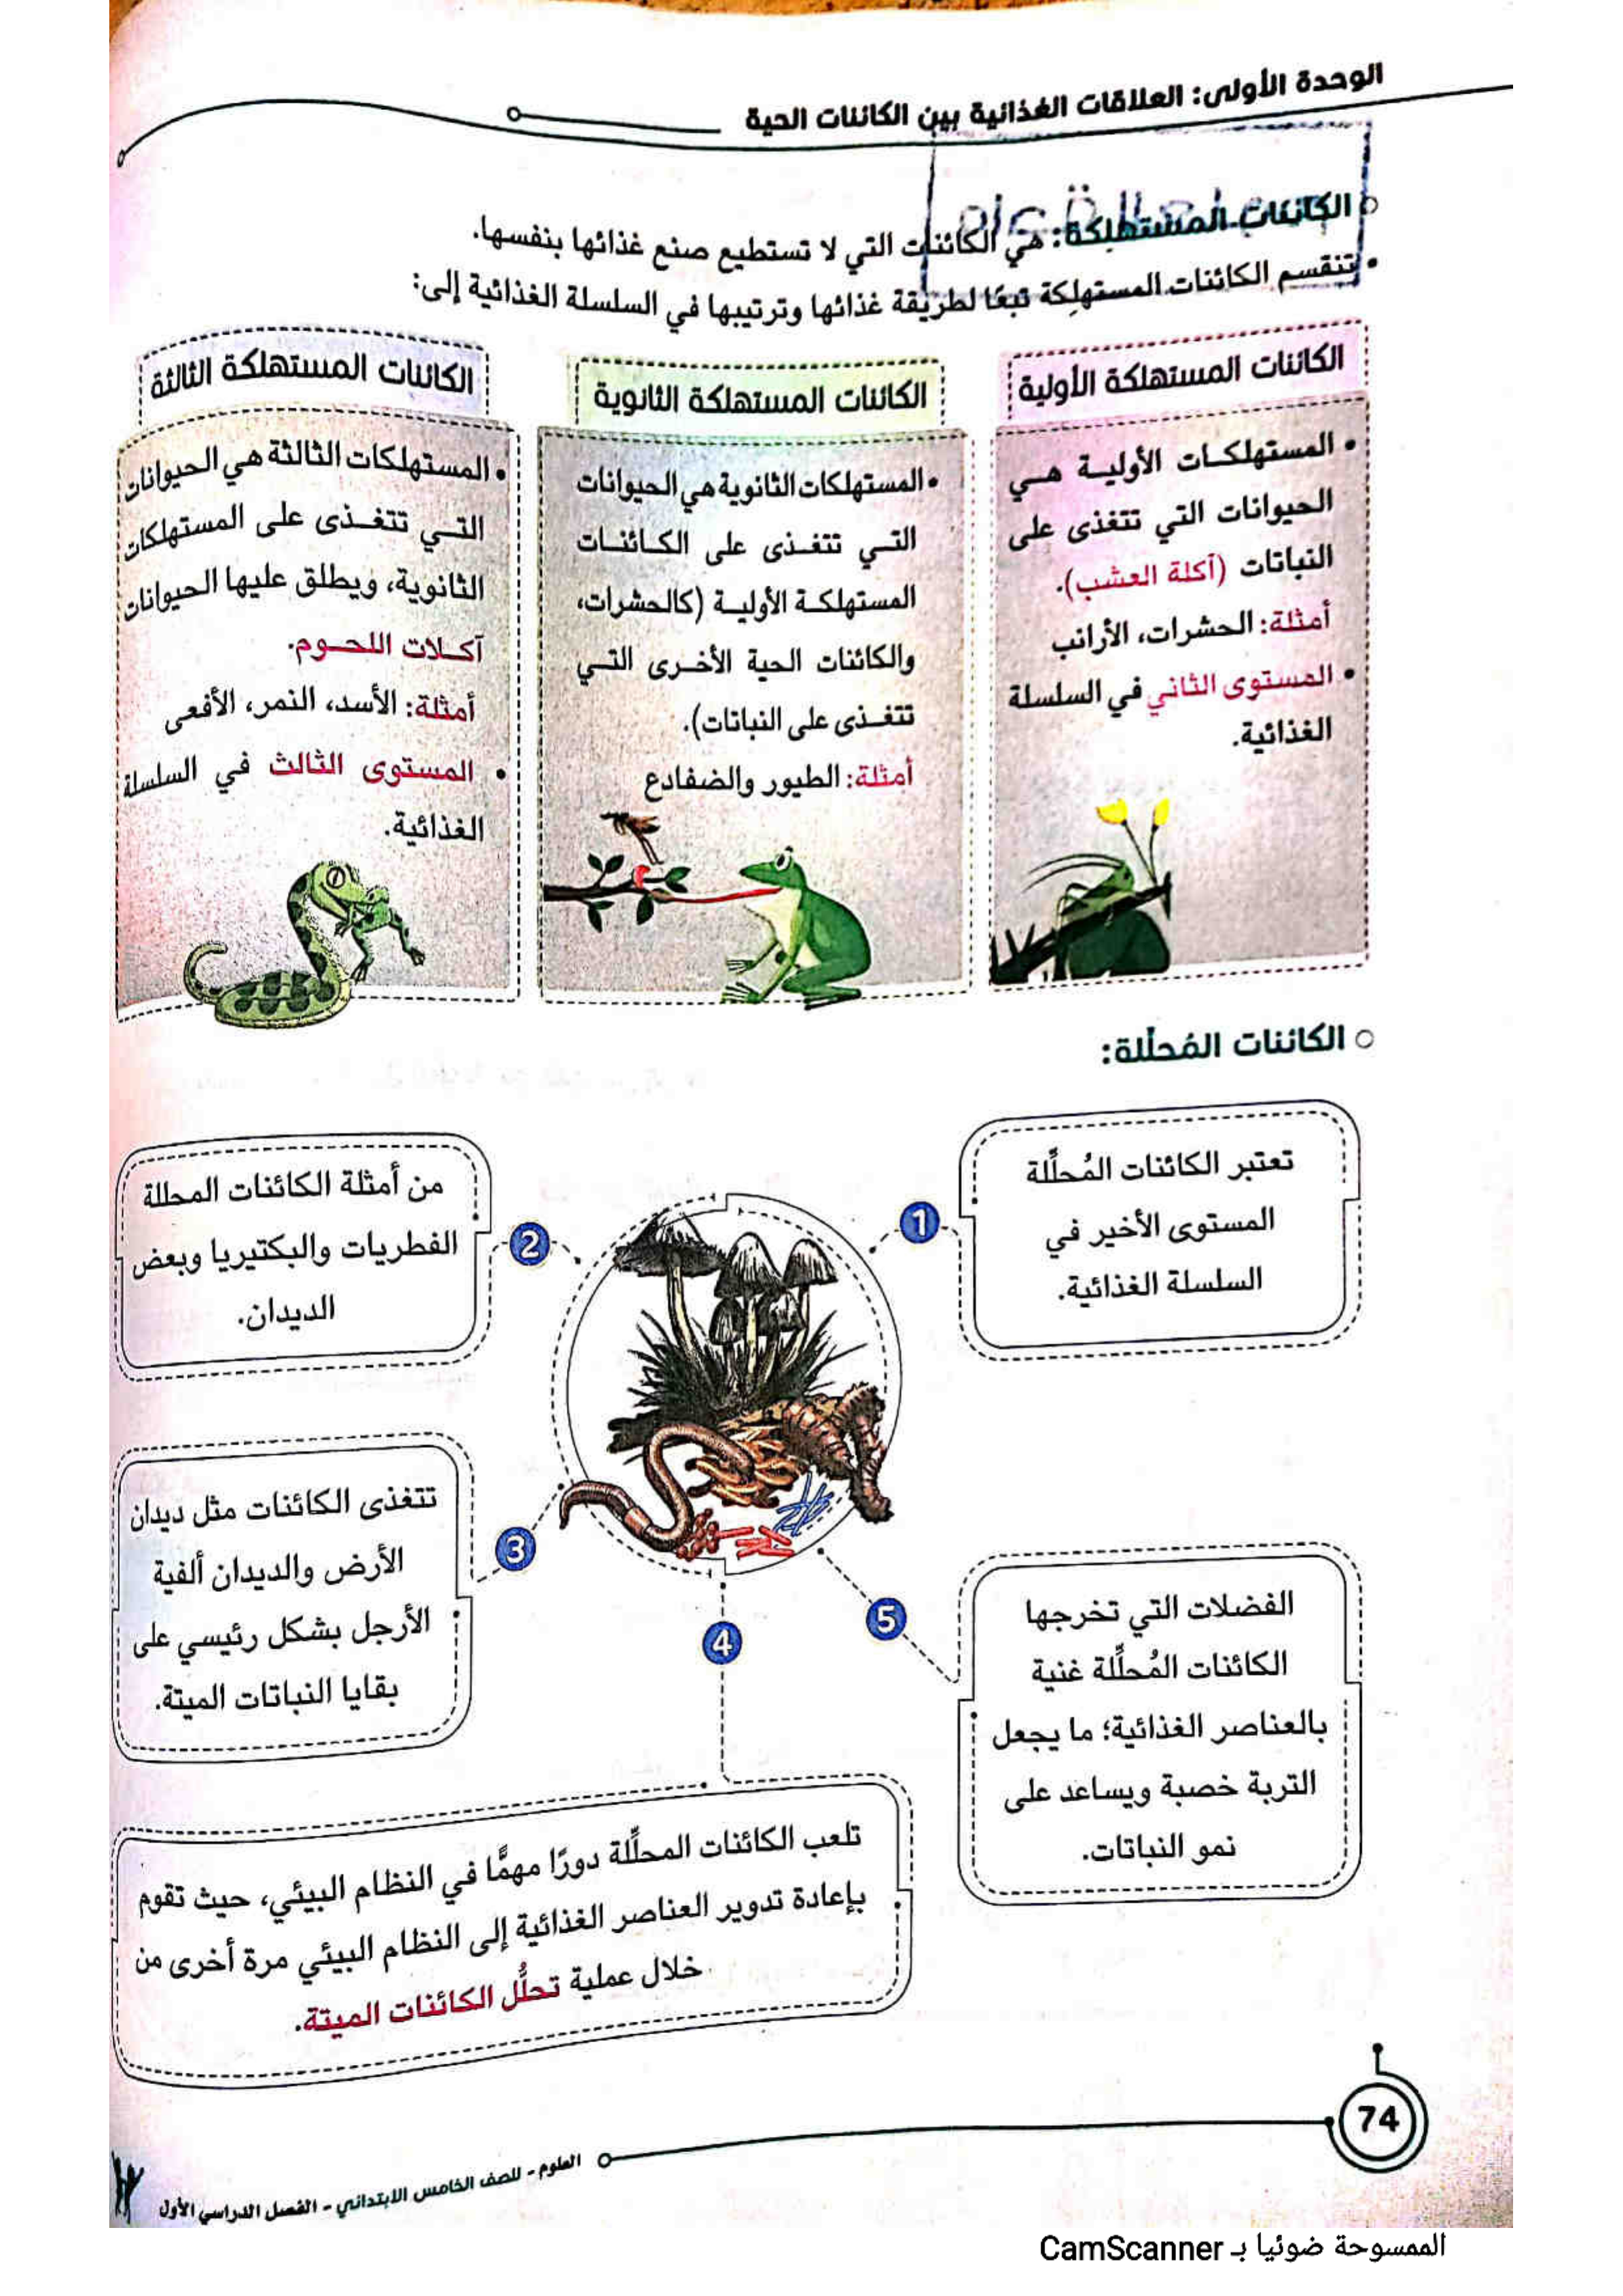 الوحدة الأولى: العلاقات الغذائية بين الكائنات الحية
الكائنات المستهلكة: هي الكائنات التي لا تستطيع صنع غذائها بنفسها.
• تنقسم الكائنات المستهلِكة تبعًا لطريقة غذائها وترتيبها في السلسلة الغذائية إلى:
الكائنات المستهلكة الأولية
• المستهلكات الأولية هي
الحيوانات التي تتغذى على
النباتات (آكلة العشب).
أمثلة: الحشرات، الأرانب
• المستوى الثاني في السلسلة
الغذائية.
الكائنات المستهلكة الثانوية
• المستهلكات الثانوية هي الحيوانات
التي تتغذى على الكائنات
المستهلكة الأولية (كالحشرات،
والكائنات الحية الأخرى التي
تتغذى على النباتات).
أمثلة: الطيور والضفادع
الكائنات المستهلكة الثالثة
• المستهلكات الثالثة هي الحيوانات
التي تتغذى على المستهلكات
الثانوية، ويطلق عليها الحيوانات
آكلات اللحوم.
أمثلة: الأسد، النمر، الأفعى
• المستوى الثالث في السلسلة
الغذائية.
الكائنات المُحلِّلة:
1
تعتبر الكائنات المُحلِّلة
المستوى الأخير في
السلسلة الغذائية.
2
من أمثلة الكائنات المحللة
الفطريات والبكتيريا وبعض
الديدان.
3
تتغذى الكائنات مثل ديدان
الأرض والديدان ألفية
الأرجل بشكل رئيسي على
بقايا النباتات الميتة.
4
تلعب الكائنات المحلِّلة دورًا مهمًّا في النظام البيئي، حيث تقوم
بإعادة تدوير العناصر الغذائية إلى النظام البيئي مرة أخرى من
خلال عملية تحلُّل الكائنات الميتة.
5
الفضلات التي تخرجها
الكائنات المُحلِّلة غنية
بالعناصر الغذائية؛ ما يجعل
التربة خصبة ويساعد على
نمو النباتات.
74
العلوم - للصف الخامس الابتدائي - الفصل الدراسي الأول
الممسوحة ضوئيا بـ CamScanner